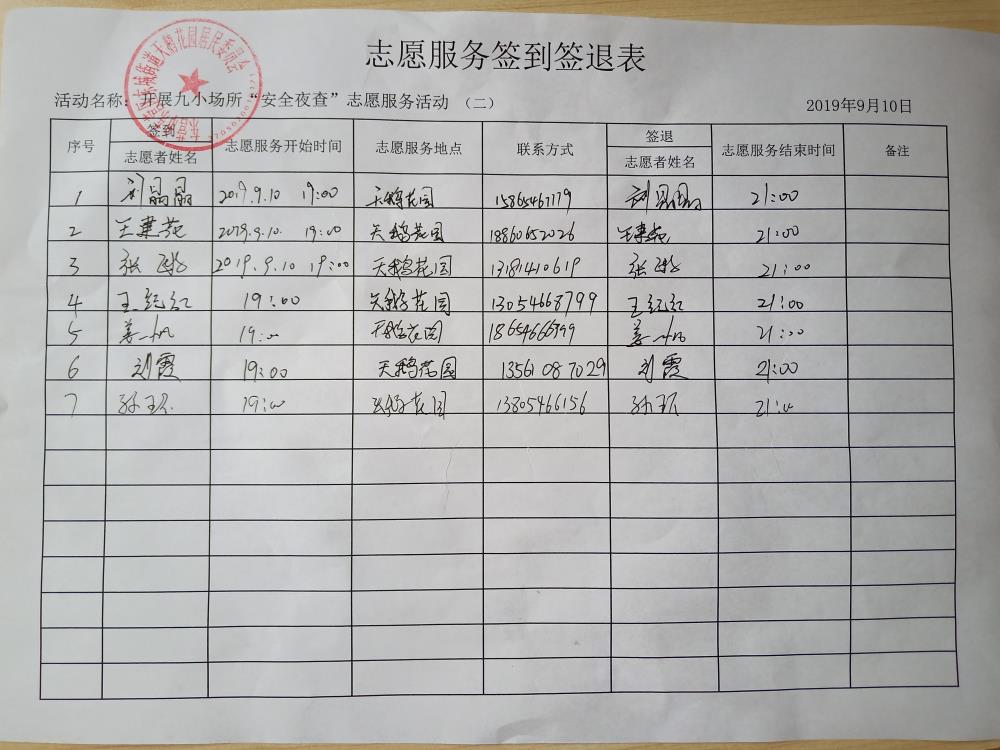 志愿服务签到签退表
活动名称：开展九小场所“安全夜查”志愿服务活动 （二）
2019年9月10日
序号 签到 志愿者姓名 志愿服务开始时间 志愿服务地点 联系方式 签退 志愿者姓名 志愿服务结束时间 备注
1 刘晶晶 2019.9.10 19:00 天鹅花园 15865467179 刘晶晶 21:00
2 王建苑 2019.9.10. 19:00 天鹅花园 18860652026 王建苑 21:00
3 张 2019.9.10 19:00 天鹅花园 13181410619 张 21:00
4 王纪红 19:00 天鹅花园 13054668799 王纪红 21:00
5 姜 19:00 天鹅花园 18654666799 姜 21:00
6 刘霞 19:00 天鹅花园 13561087029 刘霞 21:00
7 孙 19:00 天鹅花园 13805466156 孙 21:00